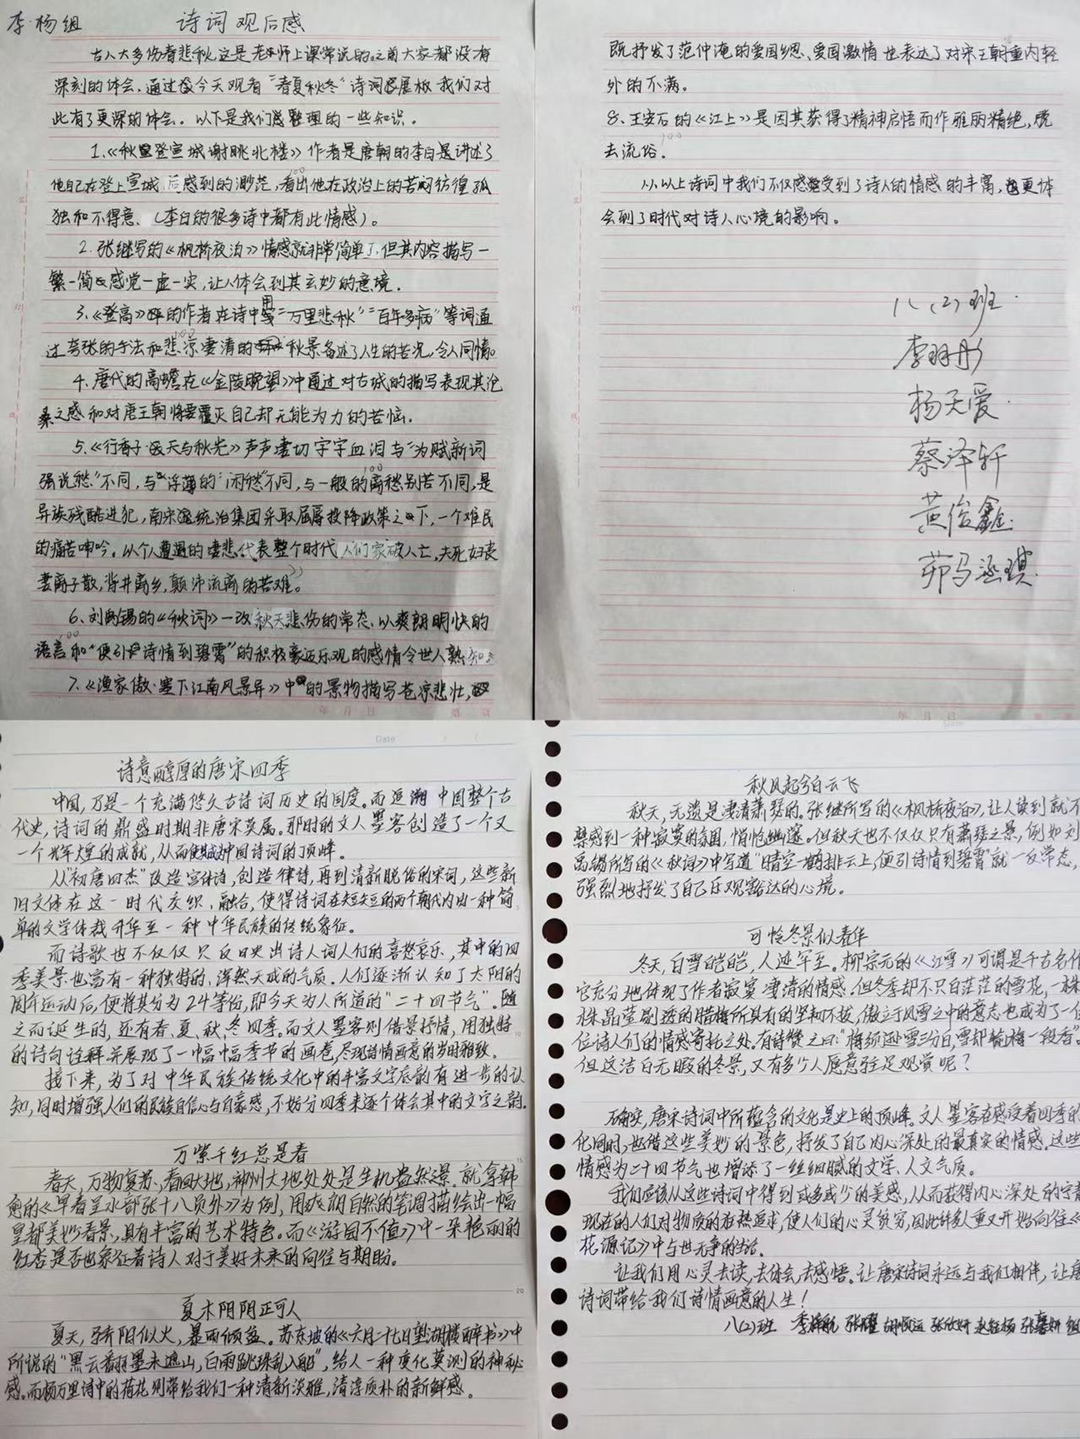 李·杨组
诗词观后感
古人大多伤春悲秋,这是老师上课常说的。之前大家都没有
深刻的体会,通过今天观看“春夏秋冬”诗词展板,我们对
此有了更深的体会。以下是我们整理的一些知识。
1.《秋登宣城谢眺北楼》作者是唐朝的李白是讲述了
他自己在登上宣城后感到的渺茫,看出他在政治上的苦闷彷徨孤
独和不得意、(李白的很多诗中都有此情感)。
2.张继写的《枫桥夜泊》情感就非常简单了,但其内容描写一
繁一简感觉一虚一实,让人体会到其玄妙的意境.
3.《登高》的作者在诗中用“万里悲秋”“百年多病”等词通
过夸张的手法和悲凉凄清的秋景备述了人生的苦况,令人同情。
4.唐代的高蟾在《金陵晚望》中通过对古城的描写表现其沧
桑之感和对唐王朝将要覆灭自己却无能为力的苦恼.
5.《行香子·天与秋光》声声凄切字字血泪与“为赋新词
强说愁”不同,与“浮薄的“闲愁”不同,与一般的离愁别苦不同,是
异族残酷进犯,南宋统治集团采取屈辱投降政策之下,一个难民
的痛苦呻吟。以个人遭遇的凄悲代表整个时代人们家破人亡,夫死妇丧
妻离子散,背井离乡,颠沛流离的苦难。
6.刘禹锡的《秋词》一改秋天悲伤的常态,以爽朗明快的
语言和“便引诗情到碧霄”的积极豪迈乐观的感情令世人熟知
7.《渔家傲·塞下江南风景异》中的景物描写苍凉悲壮,
年 月 日
既抒发了范仲淹的爱国思、爱国激情也表达了对宋王朝重内轻
外的不满。
8.王安石的《江上》是因其获得了精神启悟而作雅丽精绝,脱
去流俗.
从以上诗词中我们不仅感受到了诗人的情感的丰富,更体
会到了时代对诗人心境的影响。
八(2)班.
李羽彤
杨天爱.
蔡泽轩
黄俊鑫
茆马涵琪.
年 月 日
Date
诗意醇厚的唐宋四季
中国,乃是一个充满悠久古诗词历史的国度。而追溯中国整个古
代史,诗词的鼎盛时期非唐宋莫属。那时的文人墨客创造了一个又
一个辉煌的成就,从而使赋中国诗词的了顶峰。
从“初唐四杰”改造宫体诗,创造律诗,再到清新脱俗的宋词,这些新
旧文体在这一时代交织、融合,使得诗词在短短的两个朝代内由一种简
单的文学体裁升华至一种中华民族的传统象征。
而诗歌也不仅仅只反映出诗人词人们的喜怒哀乐,其中的四
季美景也富有一种独特的,浑然天成的气质。人们逐渐认知了太阳的
周年运动后,便将其分为24等份,即今天为人所道的“二十四节气”。随
之而诞生的,还有春、夏、秋、冬四季。而文人墨客则借景抒情,用独特
的诗句诠释并展现了一幅幅季节的画卷,尽现诗情画意的岁时雅致。
接下来,为了对中华民族传统文化中的丰富文字底韵有进一步的认
知,同时增强人们的民族自信心与自豪感,不妨分四季来逐个体会其中的文字之韵。
万紫千红总是春
春天,万物复苏,春回大地,神州大地处处是生机盎然之景.就拿韩
愈的《早春呈水部张十八员外》为例,用成朗自然的笔调描绘出一幅
皇都美妙春景,具有丰富的艺术特色。而《游园不值》中一朵艳丽的
红杏是否也象征着诗人对于美好未来的向往与期盼。
夏木阴阴正可人
夏天,骄阳似火,暴雨倾盆。苏东坡的《六月二十七日望湖楼醉书》中
所说的“黑云翻墨未遮山,白雨跳珠乱入船”,给人一种变化莫测的神秘
感。而杨万里诗中的荷花则带给我们一种清新淡雅,清淳质朴的新鲜感。
秋风起兮白云飞
秋天,无疑是凄清萧瑟的。张继所写的《枫桥夜泊》,让人读到就不
禁感到一种寂寞的氛围,悄怆幽邃。但秋天也不仅仅只有萧瑟之景,例如刘
禹锡所写的《秋词》中写道“晴空一鹤排云上,便引诗情到碧霄”就一反常态,
强烈地抒发了自己乐观豁达的心境。
可怜冬景似春华
冬天,白雪皑皑,人迹罕至。柳宗元的《江雪》可谓是千古名作
它充分地体现了作者寂寞凄清的情感。但冬季却不只白茫茫的雪花,一株
株晶莹剔透的腊梅所具有的坚韧不拔,傲立于风雪之中的意志也成为了一位
位诗人们的情感寄托之处。有诗赞之曰:“梅须逊雪三分白,雪却输梅一段香”。
但这洁白无暇的冬景,又有多少人愿意驻足观赏呢?
确实,唐宋诗词中所蕴含的文化是史上的顶峰。文人墨客在感受着四季的
化同时,也借这些美妙的景色,抒发了自己内心深处的最真实的情感。这些
情感为二十四节气也增添了一丝细腻的文学、人文气质。
我们应该从这些诗词中得到或多或少的美感,从而获得内心深处的宁静
现在的人们对物质的狂热追求,使人们的心灵贫穷,因此许多人重又开始向往《
花源记》中与世无争的生活。
让我们用心灵去读,去体会,去感悟。让唐宋诗词永远与我们相伴,让唐
诗词带给我们诗情画意的人生!
八(2)班